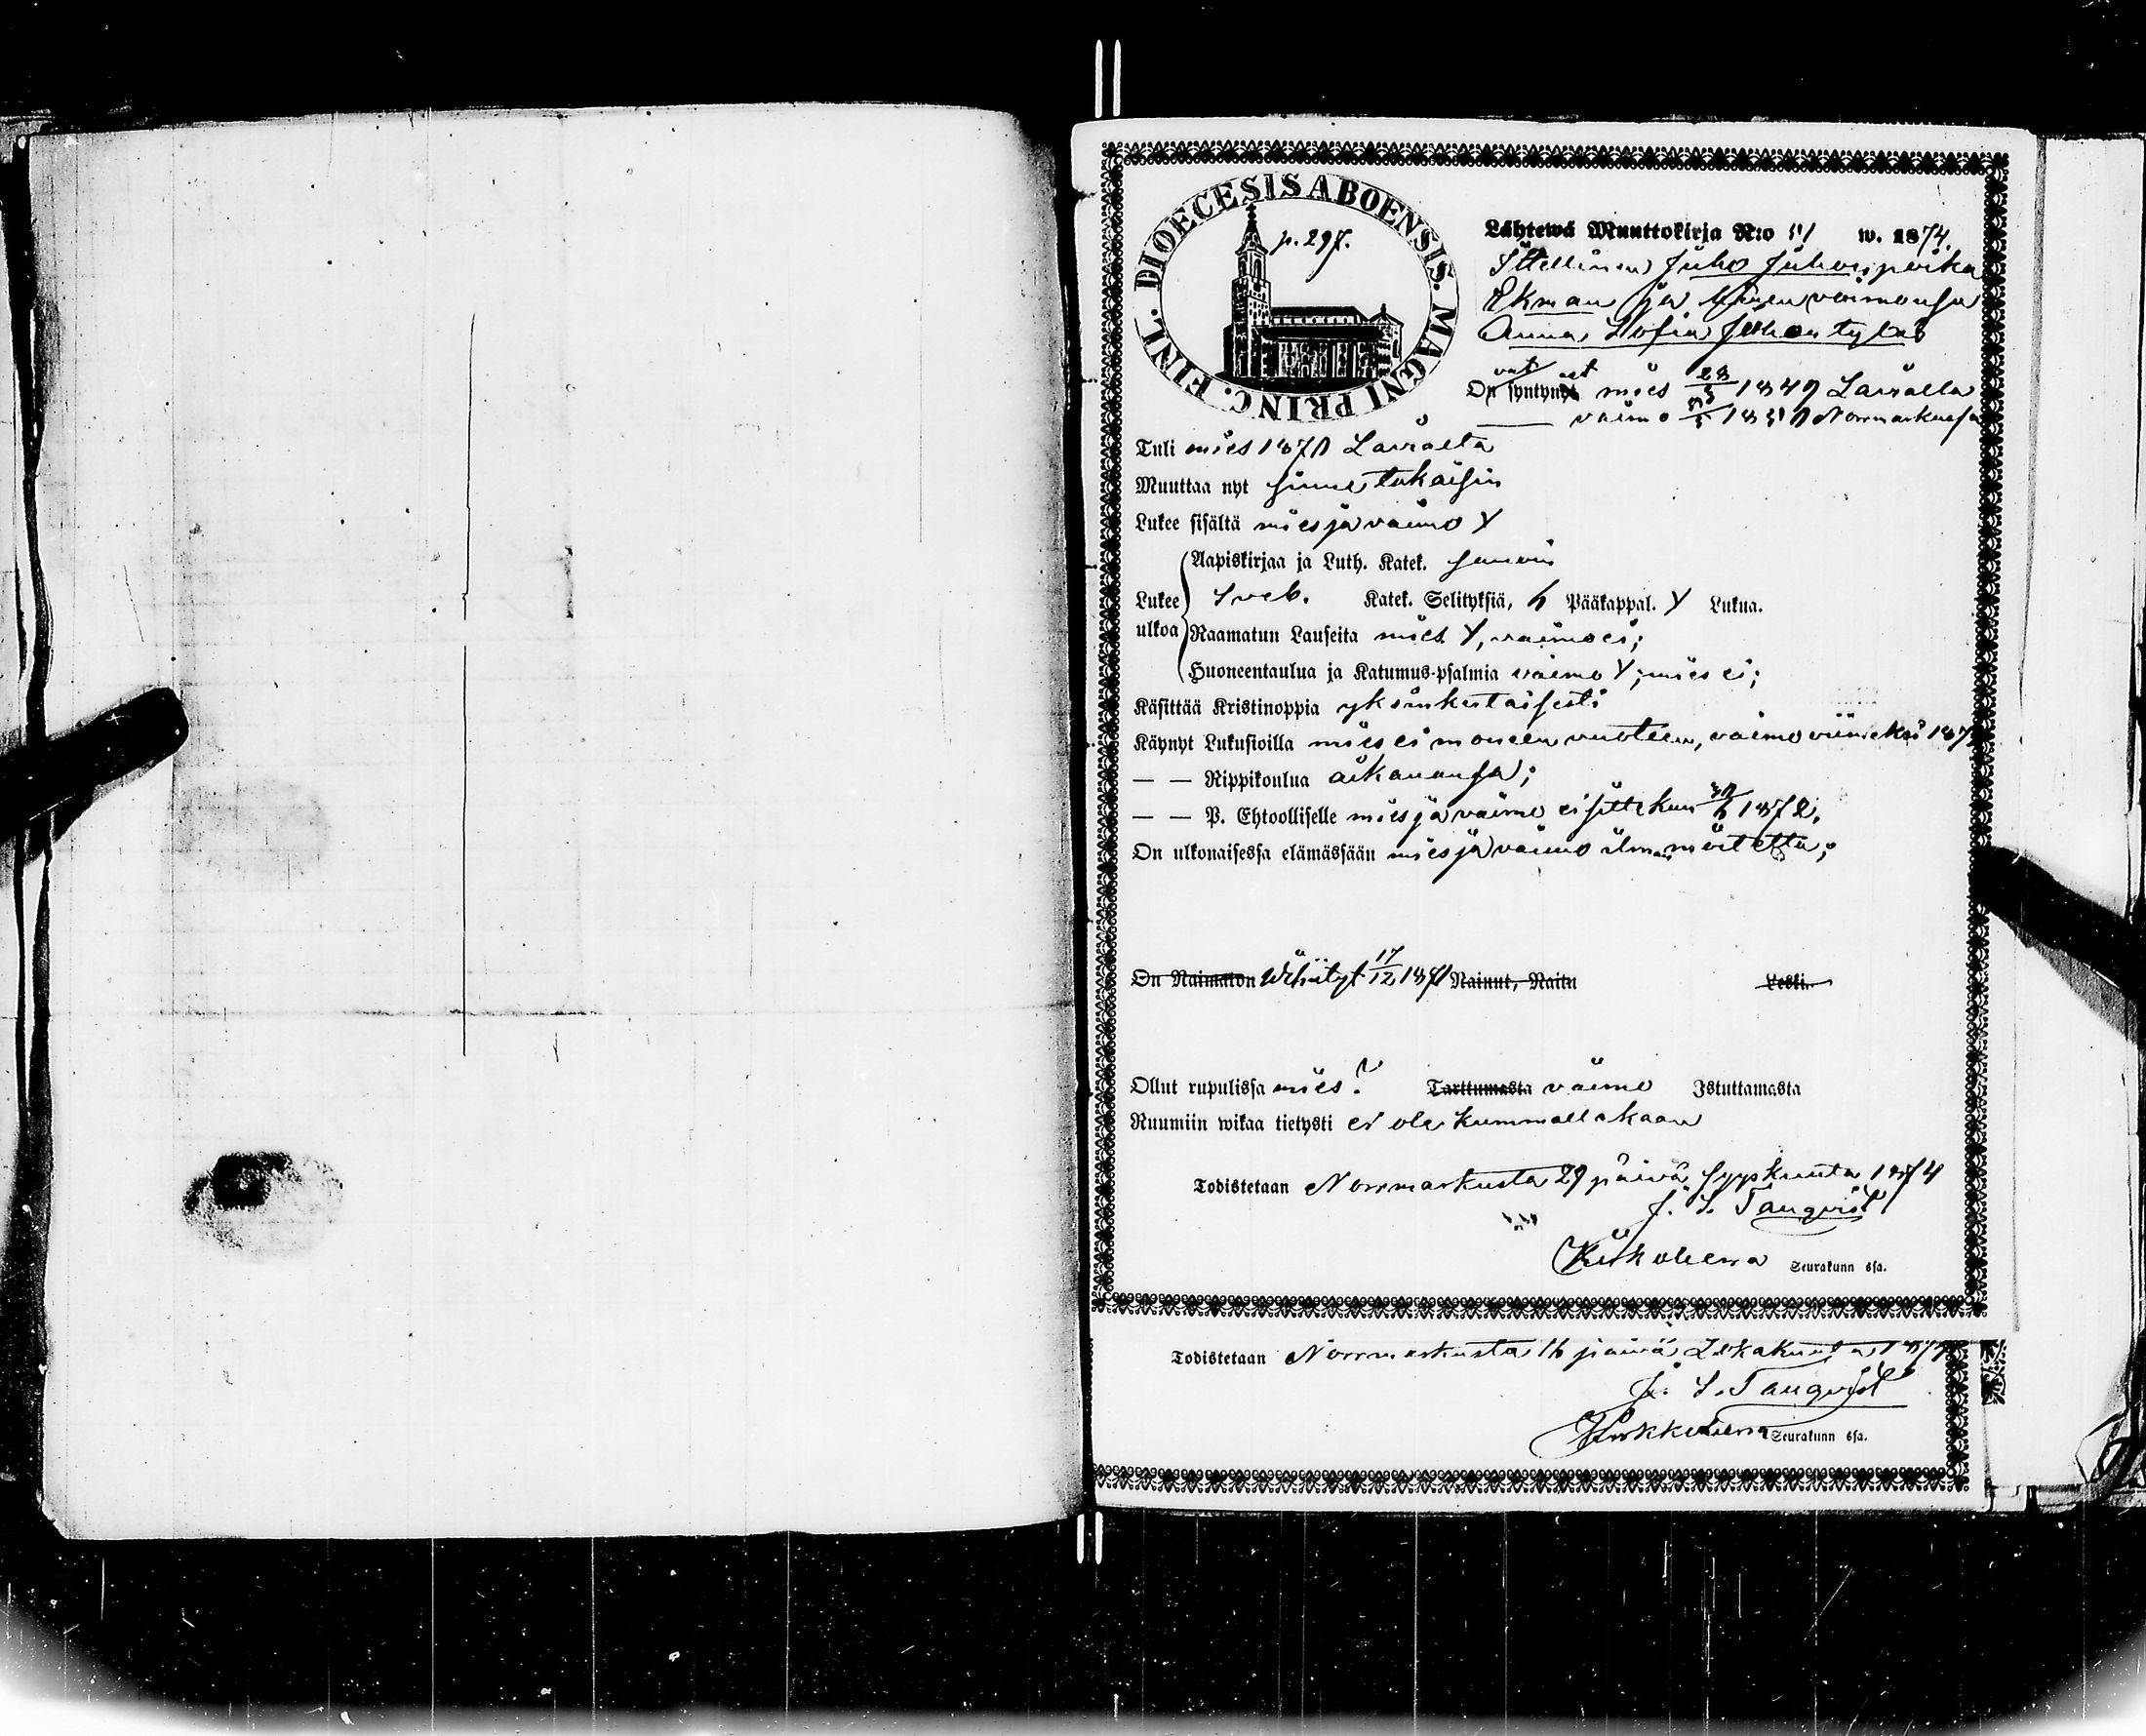 DIOECESIS ABOENSIS. MAGNI PRINC. FINL.
p. 297.
Lähtewä Muuttokirja N:o 51 w. 1874.
Itsellinen Juho Juhonpoika
Ekman ja hänen vaimonsa
Anna Sofia Juhon tytär
vat eet
On syntynyt mies 1849 Lavialla
vaimo Normarkussa
Tuli mies 1871 Lavialta
Muuttaa nyt sinne takaisin
Lukee sisältä mies ja vaimo Y
Aapiskirjaa ja Luth. Katek. samoin
Lukee ulkoa
Sveb. Katek. Selityksiä, h Pääkappal. Y Lukua.
Raamatun Lauseita mies Y, vaimo ei;
Huoneentaulua ja Katumus-psalmia vaimo Y; mies ei;
Käsittää Kristinoppia yksinkertaisesti
Käynyt Lukusioilla mies ei moneen vuoteen, vaimo viimeksi
— — Rippikoulua aikananssa;
— — P. Ehtoolliselle mies ja vaimo ei sitte kun 1872.
On ulkonaisessa elämässään mies ja vaimo ilman moitetta;
On Naimaton Wihityt 17/12 1871 Nainut, Naitu Leski.
Ollut rupulissa mies? Tarttumasta vaimo Istuttamasta
Ruumiin wikaa tietysti ei ole kummallakaan
Todistetaan Norrmarkusta 29 päivä Syyskuuta 1874
J. S. Tanqvist
Kirkoherra Seurakunn ssa.
Todistetaan Norrmarkusta 16 päivä Lokakuuta
J. S. Tanqvist
Kirkkoherra Seurakunn ssa.